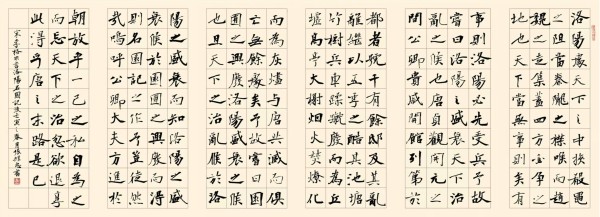 洛陽處天下之中挾殽黽
之阻當秦隴之襟喉而趙
魏之走集蓋四方必爭之
地也天下當無事則已有
事則洛陽必先受兵予故
嘗曰洛陽之盛衰天下治
亂之候也唐貞觀開元之
間公卿貴戚開館列第於
都者號千有餘邸及其亂
離繼以五季之酷其池塘
竹樹兵車蹂蹴廢而為丘
墟高亭大榭烟火焚燎化
而為灰燼與唐共滅而俱
亡無餘處矣予故嘗曰園
囿之興廢洛陽盛衰之候
也且天下之治亂候於洛
陽之盛衰而知洛陽之盛
衰候於園囿之興廢而得
則名園記之作予豈徒然
哉嗚呼公卿大夫方進於
朝放乎一己之私自為之
而忘天下之治忽欲退享
此得乎唐之末路是已
宋李格非書洛陽名園記後壬寅之春月張書